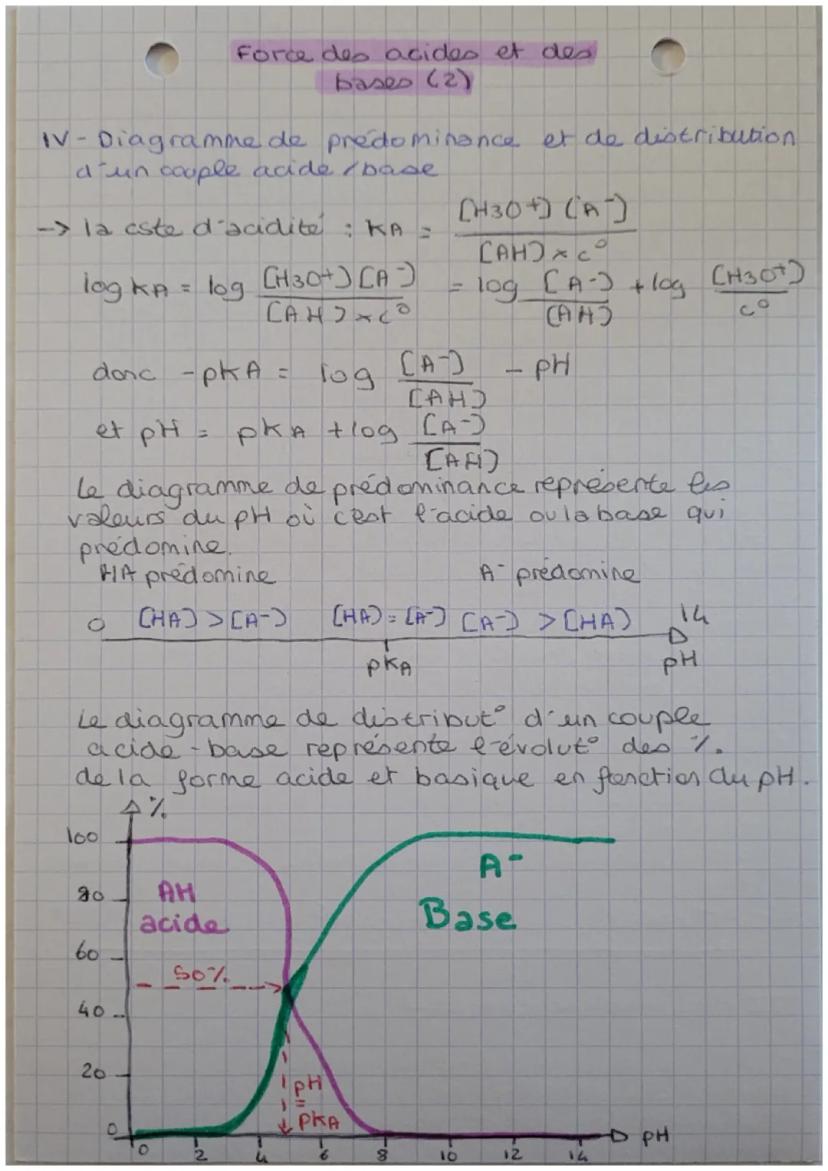 Force des acides et des
bases (2)
IV - Diagramme de prédominance et de distribution
d'un couple acide / base
-> la cste d'acidité : KA = [H3O+] [A-] / [AH] x c°
log KA = log [H3O+] [A-] / [AH] x c° = log [A-] / [AH] + log [H3O+] / c°
donc -pKA = log [A-] / [AH] - pH
et pH = pKA + log [A-] / [AH]
Le diagramme de prédominance représente les
valeurs du pH où c'est l'acide ou la base qui
prédomine.
HA prédomine A- prédomine
0 [HA] > [A-] [HA] = [A-] [A-] > [HA] 14
pKA pH
Le diagramme de distribut° d'un couple
acide-base représente l'évolut° des %.
de la forme acide et basique en fonction du pH.
%
100
80
60
40
20
0
AH
acide
50%
A-
Base
pH
=
PKA
0 2 4 6 8 10 12 14 pH